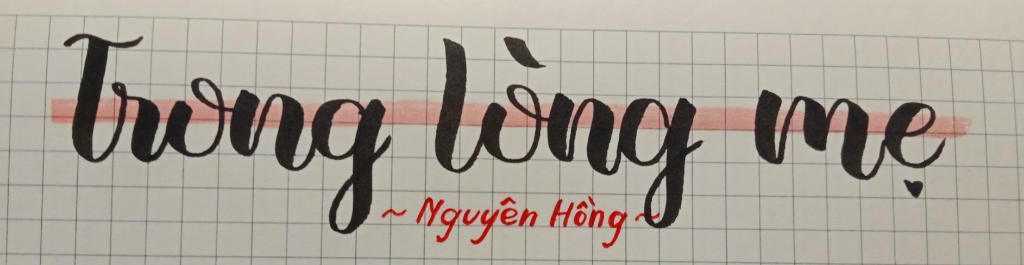 Trong lòng mẹ
~ Nguyên Hồng ~